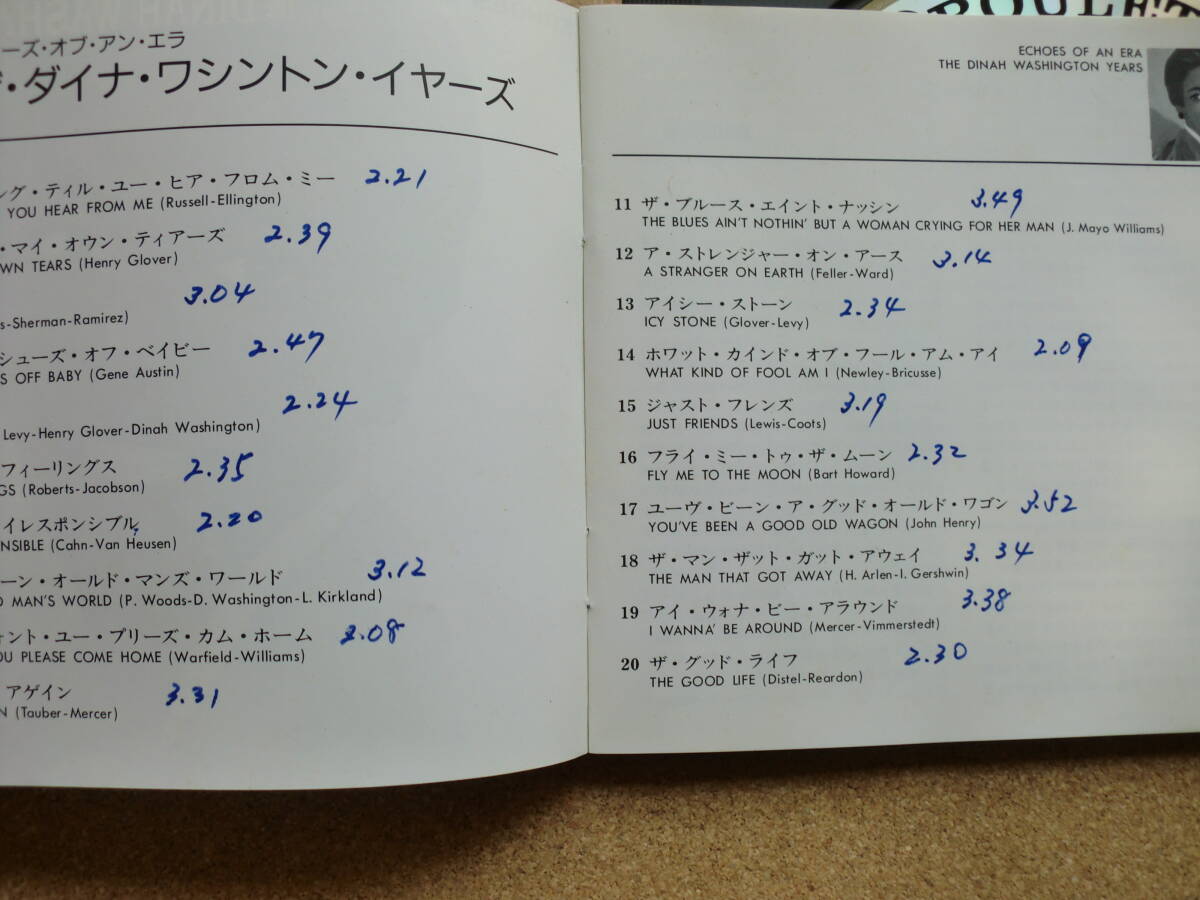 ーズ・オブ・アン・エラ
・ダイナ・ワシントン・イヤーズ
ング・ティル・ユー・ヒア・フロム・ミー 2.21
YOU HEAR FROM ME (Russell-Ellington)
・マイ・オウン・ティアーズ 2.39
WN TEARS (Henry Glover)
3.04
s-Sherman-Ramirez)
シューズ・オフ・ベイビー 2.47
S OFF BABY (Gene Austin)
2.24
Levy-Henry Glover-Dinah Washington)
フィーリングス 2.35
GS (Roberts-Jacobson)
イレスポンシブル 2.20
NSIBLE (Cahn-Van Heusen)
ーン・オールド・マンズ・ワールド 3.12
D MAN'S WORLD (P. Woods-D. Washington-L. Kirkland)
ォント・ユー・プリーズ・カム・ホーム 2.08
OU PLEASE COME HOME (Warfield-Williams)
アゲイン 3.31
N (Tauber-Mercer)
ECHOES OF AN ERA
THE DINAH WASHINGTON YEARS
11 ザ・ブルース・エイント・ナッシン 3.49
THE BLUES AIN'T NOTHIN' BUT A WOMAN CRYING FOR HER MAN (J. Mayo Williams)
12 ア・ストレンジャー・オン・アース 3.14
A STRANGER ON EARTH (Feller-Ward)
13 アイシー・ストーン 2.34
ICY STONE (Glover-Levy)
14 ホワット・カインド・オブ・フール・アム・アイ 2.09
WHAT KIND OF FOOL AM I (Newley-Bricusse)
15 ジャスト・フレンズ 3.19
JUST FRIENDS (Lewis-Coots)
16 フライ・ミー・トゥ・ザ・ムーン 2.32
FLY ME TO THE MOON (Bart Howard)
17 ユーヴ・ビーン・ア・グッド・オールド・ワゴン 3.52
YOU'VE BEEN A GOOD OLD WAGON (John Henry)
18 ザ・マン・ザット・ガット・アウェイ 3.34
THE MAN THAT GOT AWAY (H. Arlen-I. Gershwin)
19 アイ・ウォナ・ビー・アラウンド 3.38
I WANNA' BE AROUND (Mercer-Vimmerstedt)
20 ザ・グッド・ライフ 2.30
THE GOOD LIFE (Distel-Reardon)